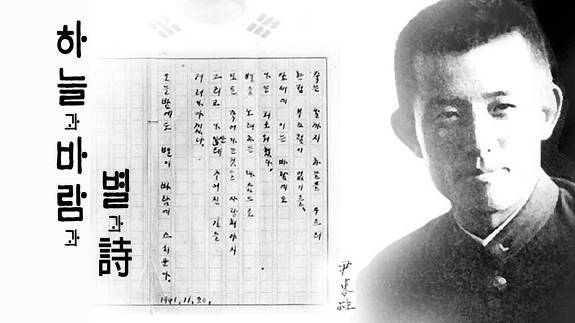 하늘과바람과
별과詩
죽는 날까지 하늘을 우르러
한점 부끄럼이 없기를,
잎새에 이는 바람에도
나는 괴로워했다.
별을 노래하는 마음으로
모든 죽어가는것을 사랑해야지
그리고 나안테 주어진 길을
거러가야겠다.
오늘밤에도 별이 바람에 스치운다.
1941.11.20.
尹東柱